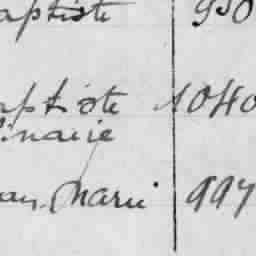 aptiste 930
aptiste 1040
inaire
an Marie 997